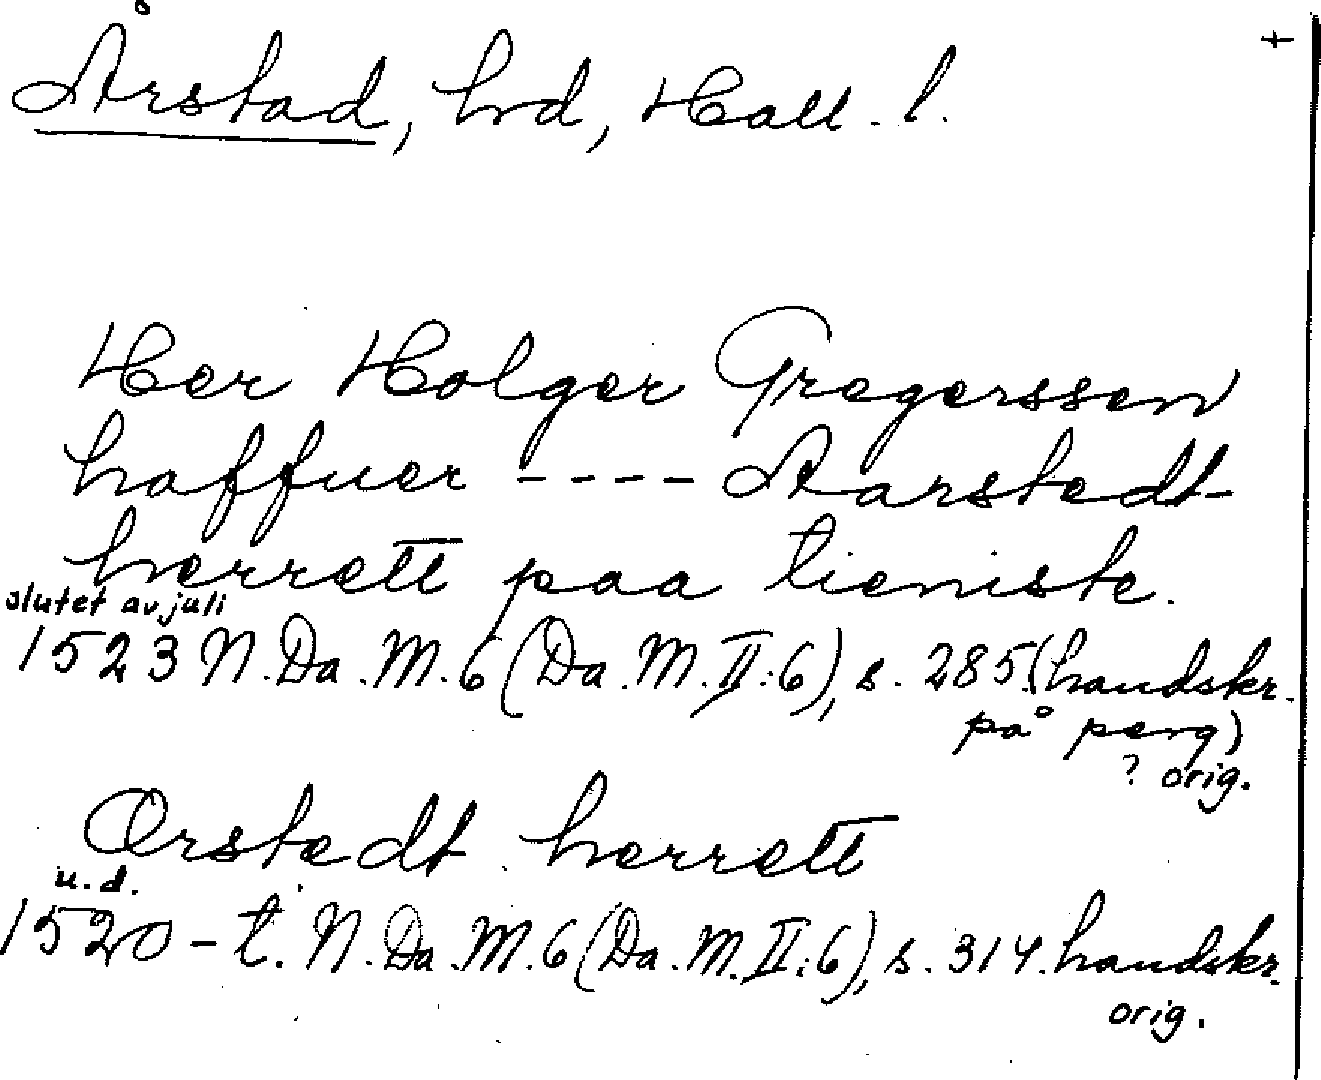 Årstad, hrd, Hall. l. +
Her Holger Gregerssen
haffuer ---- Aarstedt-
herrett paa tieniste.
slutet av juli
1523 N. Da. M. 6 (Da. M. II:6), s. 285. (handskr.
på perg)
? orig.
Ørstedt herrett
u. d.
1520-t. N. Da. M. 6 (Da. M. II:6), s. 314. handskr.
orig.